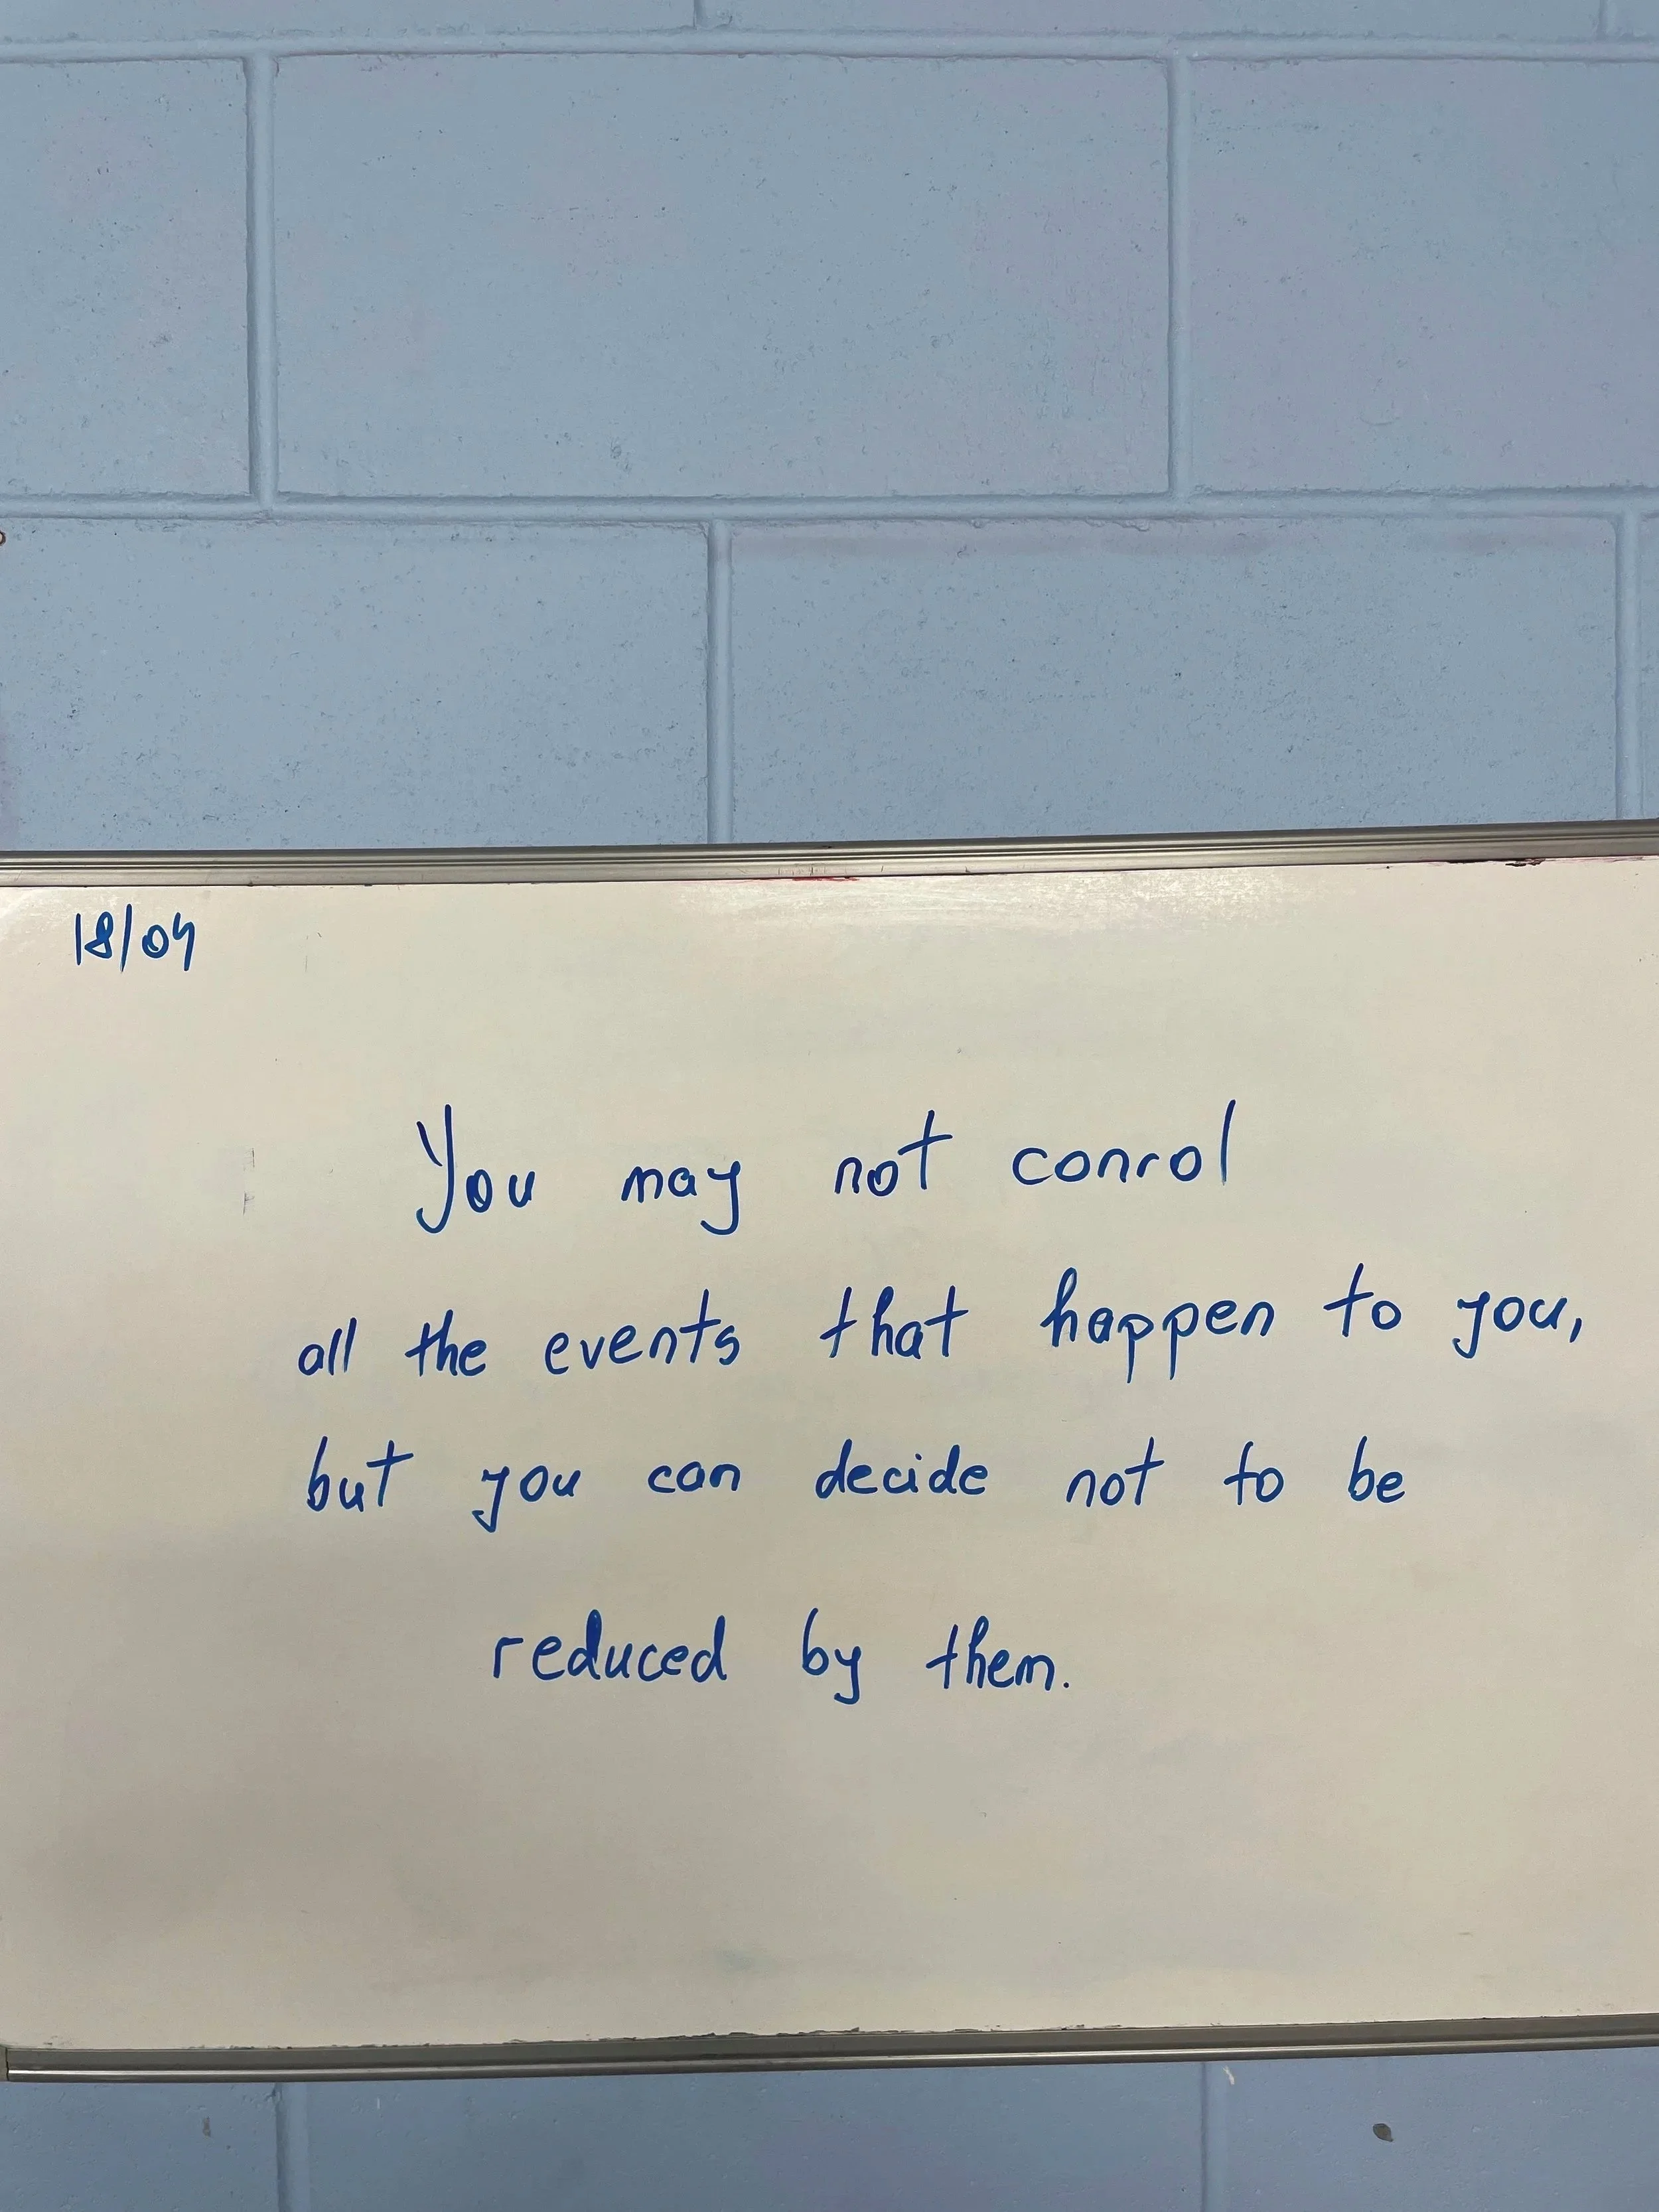 18/04
You may not conrol
all the events that happen to you,
but you can decide not to be
reduced by them.